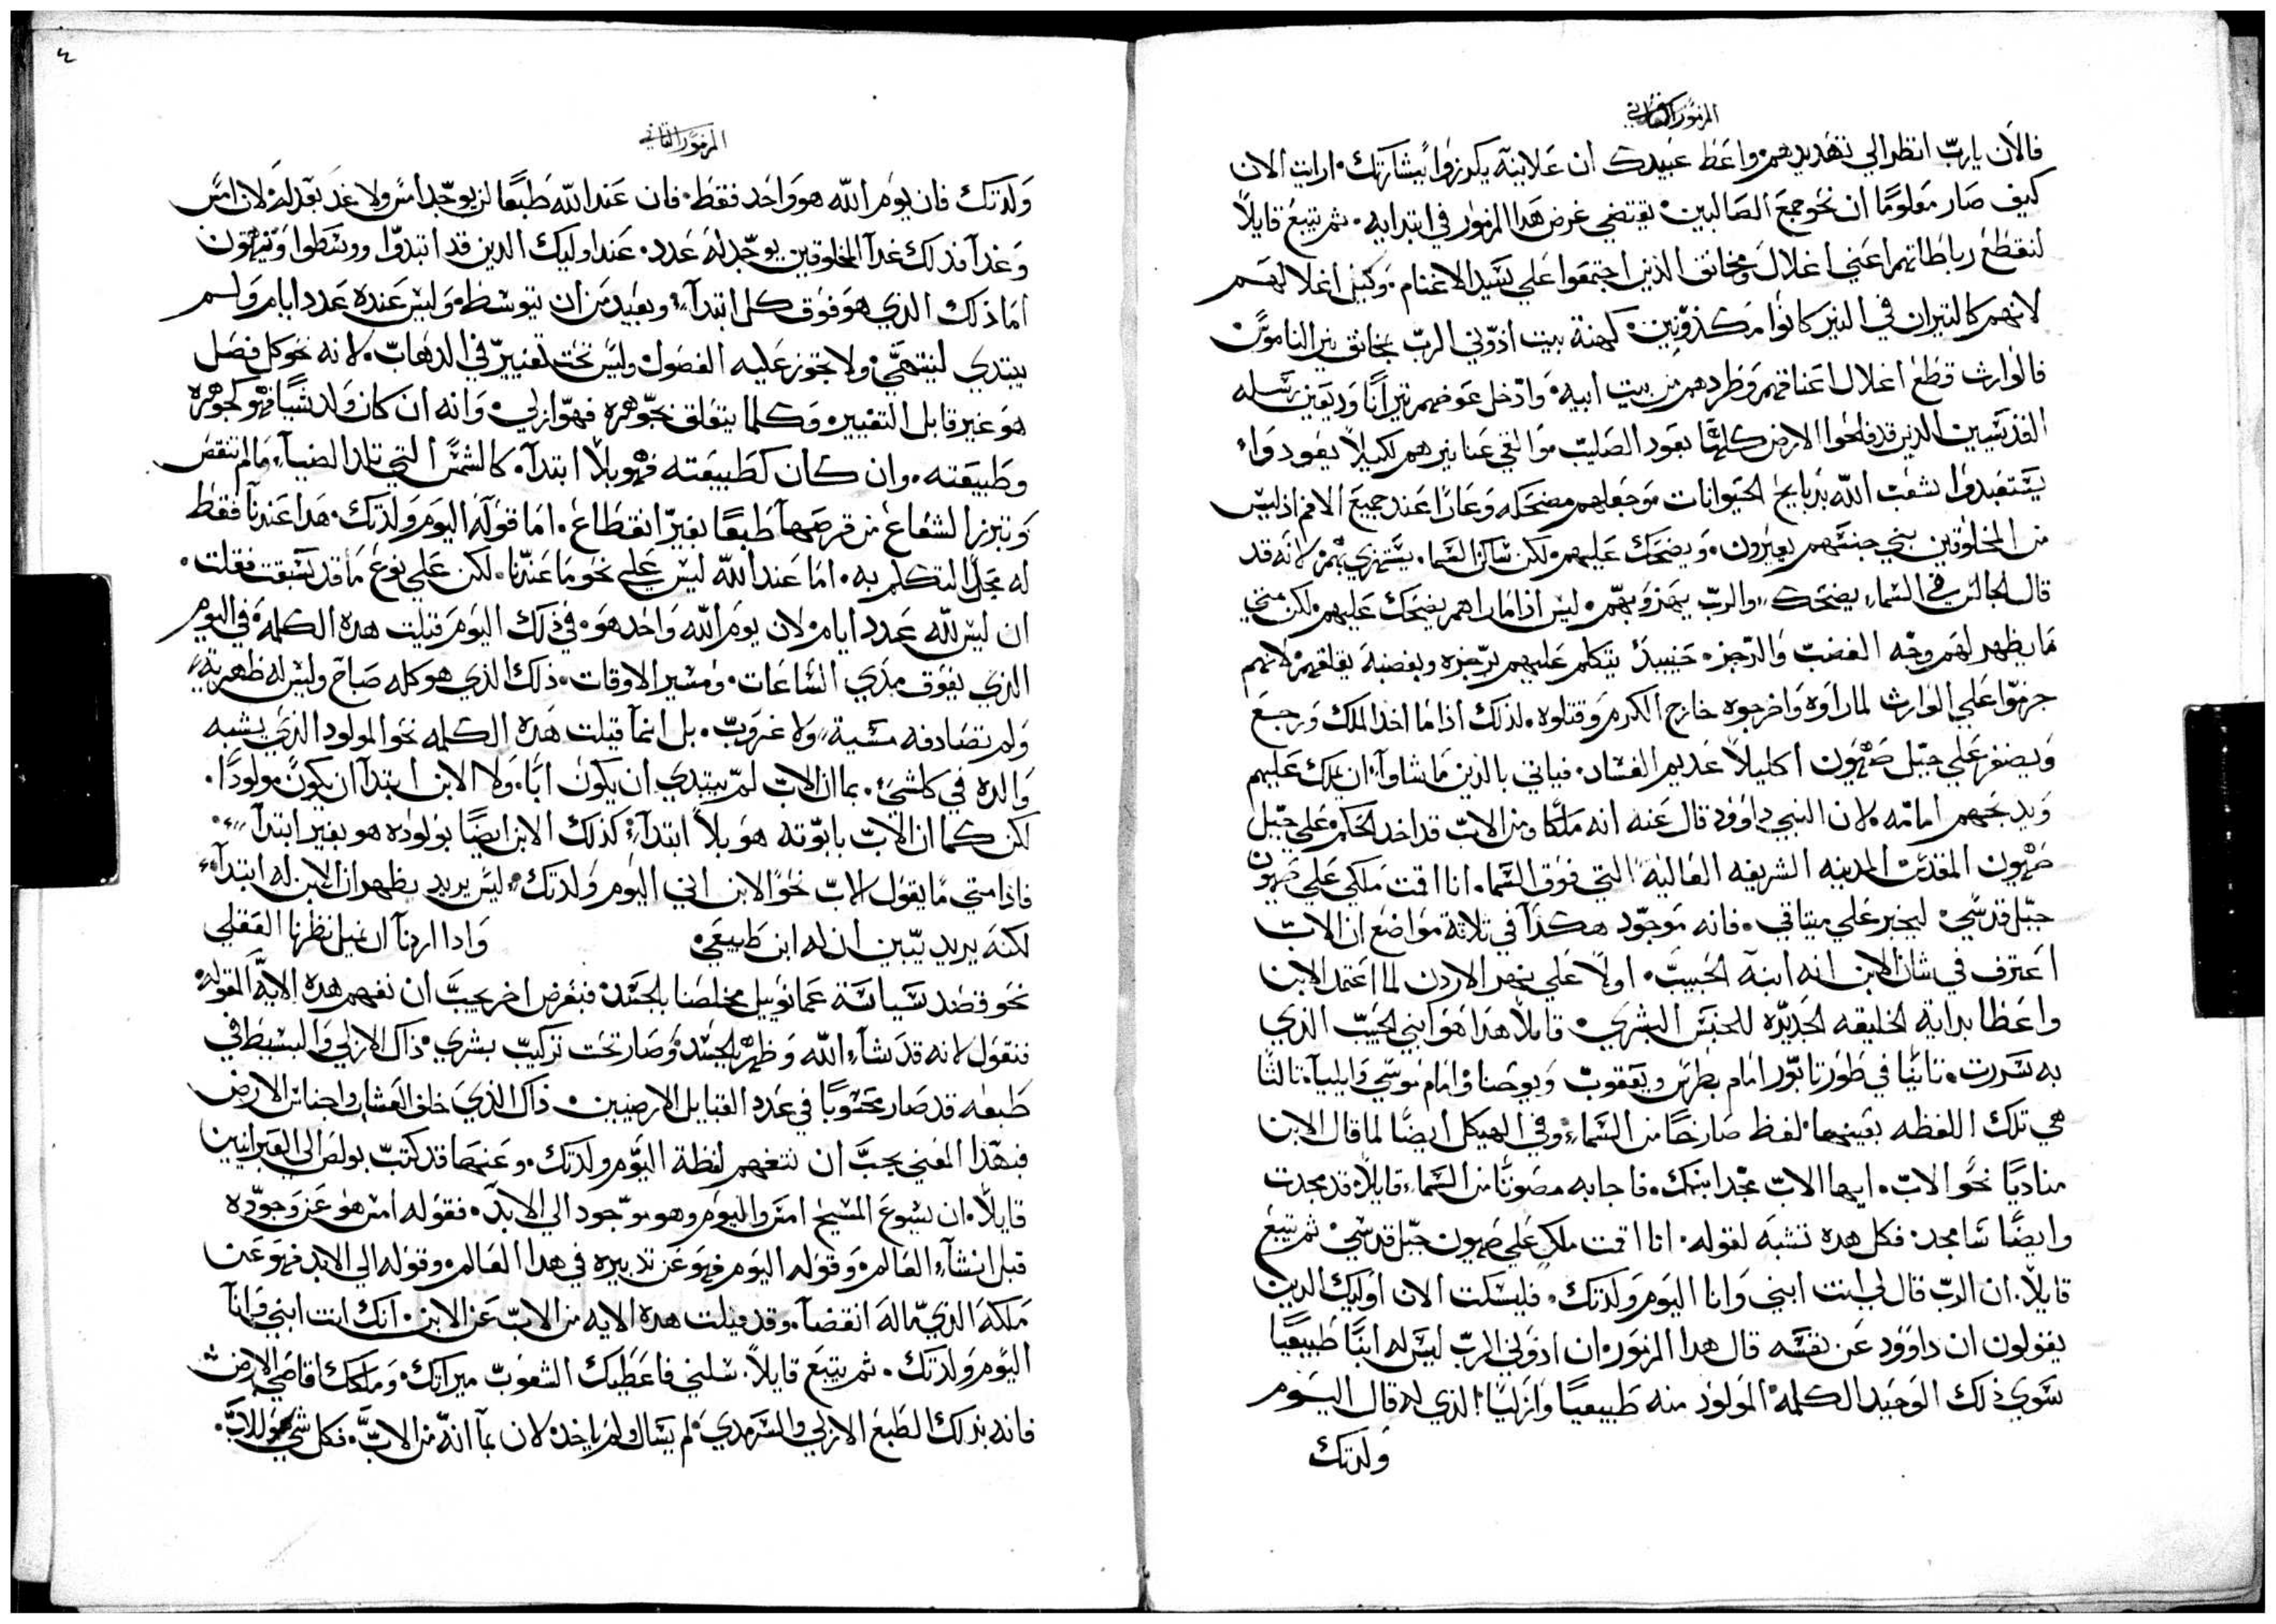 المزمور الثاني
فالان يارب انظر الي تهديدهم واعط عبيدك ان علانيه يكرزوا بشارتك. ارايت الان
كيف صار معلومًا ان نحو جمع الصالبين يقتضي غرض هدا المزمور في ابتدايه. ثم يتبع قايلاً
لنقطع رباطاتهم اعني اغلال ومخانق الذين اجتمعوا علي سيد الاغنام. وكيل اغلالهم
لانهم كالتيران في النير كانوا مكدونين كهنة بيت ادوني الرب بخانق نير الناموس
فالوارث قطع اغلال اعناقهم وطردهم من بيت ابيه. وادخل عوضهم تيرانًا وديعين رسله
القديسين الدين قد فلحوا الارض كلها بعود الصليب والقي عنا نيرهم لكيلا يعودوا
يستعبدوا شعب الله بدبايح الحيوانات وجعلهم مضحكه وعارًا عند جميع الامم اذ ليس
من المخلوقين بني جنسهم يعيرون. ويضحك عليهم لكن ساكن السما. يستهزي بهم لانه قد
قال الجالس في السماء يضحك والرب يهذو بهم. ليس اذا ما راهم يضحك عليهم. لكن متي
ما يظهر لهم وجه الغضب والرجز. حينيد يتكلم عليهم برجزه وبغضبه يقلقهم لانهم
جزموا علي الوارث لما راوه واخرجوه خارج الكرم وقتلوه. لدلك اذا ما اخد الملك ورجع
ويضفر علي جبل صهيون اكليلاً عديم الفساد. فياتي بالذين ما شاوا ان يملك عليهم
ويدبحهم امامه. لان النبي داوود قال عنه انه ملكًا ومن الاب قد اخد الحكم علي جبل
صهيون المقدس المدينه الشريفه العاليه التي فوق السما. انا اقمت ملكي علي صهيون
جبل قدسي ليخبر علي ميتاقي. فانه موجود هكذا في ثلاثة مواضع ان الاب
اعترف في شان الابن انه ابنه الحبيب. اولاً علي نهر الاردن لما اعتمد الابن
واعطا بداية الخليقه الجديده للجنس البشري. قايلاً هدا هو ابني الحبيب الذي
به سررت. تانيًا في طور تابور امام بطرس ويعقوب ويوحنا وامام موسي وايليا. تالتًا
هي تلك اللفظه بعينها لفظ صارخًا من السماء وفي الهيكل ايضًا لما قال الابن
مناديًا نحو الاب. ايها الاب مجد ابنك. فاجابه مصوتًا من السماء قايلاً قد مجدت
وايضًا سامجد. فكل هده تشبه لقوله. انا اقمت ملكي علي صهيون جبل قدسي ثم يتبع
قايلاً. ان الرب قال لي انت ابني وانا اليوم ولدتك. فليسكت الان اوليك الدين
يقولون ان داوود عن نفسه قال هدا المزمور. ان ادوني الرب ليس له ابنًا طبيعيًا
سوي ذلك الوحيد الكلمه المولود منه طبيعيًا وازليًا الذي له قال اليوم
ولدتك
٤
المزمور الثاني
ولدتك فان يوم الله هو واحد فقط. فان عند الله طبعًا لن يوجد امس ولا غد بعد له لان امس
وغدا فدلك غدا المخلوقين يوجد له عدد. عند اوليك الدين قد ابتدوا ووسطوا وينتهون
اما ذلك الذي هو فوق كل ابتداء وبعيد من ان يتوسط. وليس عنده عدد ايام ولم
يبتدي لينتهي ولا تجوز عليه الفصول وليس تحت تغيير في الدهاب. لانه نحو كل فصل
هو غير قابل التغيير وكلما يتعلق بجوهره فهو ازلي. وانه ان كان ولد شيًا فهو كجوهره
وطبيعته. وان كان كطبيعته فهو بلا ابتدا. كالشمس التي تلد الضياء ما لم تنقص
وتبرز الشعاع من قرصها طبعًا بغير انقطاع. اما قوله اليوم ولدتك. هدا عندنا فقط
له مجال التكلم به. اما عند الله ليس علي نحو ما عندنا. لكن علي نوع ما قد سبقت فقلت.
ان ليس لله عدد ايام. لان يوم الله واحد هو. في ذلك اليوم قيلت هده الكلمه. في اليوم
الذي يفوق مدي الساعات. ومسير الاوقات. ذلك الذي هو كله صباح وليس له ظهريه
ولم تصادفه مسية ولا غروب. بل انما قيلت هده الكلمه نحو المولود الذي يشبه
والده في كل شي. بما ان الاب لم يبتدي ان يكون ابًا. ولا الابن ابتدا ان يكون مولودًا.
لكن كما ان الاب بابوته هو بلا ابتداء كذلك الابن ايضًا بولوده هو بغير ابتداء
فاذا متي ما يقول الاب نحو الابن اني اليوم ولدتك. ليس يريد يظهر ان الابن له ابتداء
لكنه يريد تبيين ان له ابن طبيعي. وادا اردنا ان نميل نظرنا العقلي
نحو قصد سياسة عمانوييل مخلصنا بالجسد فبغرض اخر يجب ان نفهم هده الايه المقوله
فنقول لانه قد شاء الله وظهر بالجسد وصار تحت تركيب بشري. ذاك الازلي والبسيط في
طبعه قد صار محسوبًا في عدد القبايل الارضيين. ذاك الذي خلق العشاير واجناس الارض
فبهذا المعني يجب ان نتفهم لفظة اليوم ولدتك. وعنها قد كتب بولص الي العبرانيين
قايلاً. ان يسوع المسيح امس واليوم وهو موجود الي الابد. فقوله امس هو عن وجوده
قبل انشاء العالم. وقوله اليوم فهو عن تدبيره في هدا العالم. وقوله الي الابد فهو عن
ملكه الذي ما له انقضا. وقد قيلت هده الايه من الاب عن الابن. انك انت ابني وانا
اليوم ولدتك. ثم يتبع قايلاً. سلني فاعطيك الشعوب ميراتك. وملكك اقاصي الارض
فانه بذلك الطبع الازلي والسرمدي لم يسال ولم ياخد. لان بما انه من الاب. فكل شي هو للاب.